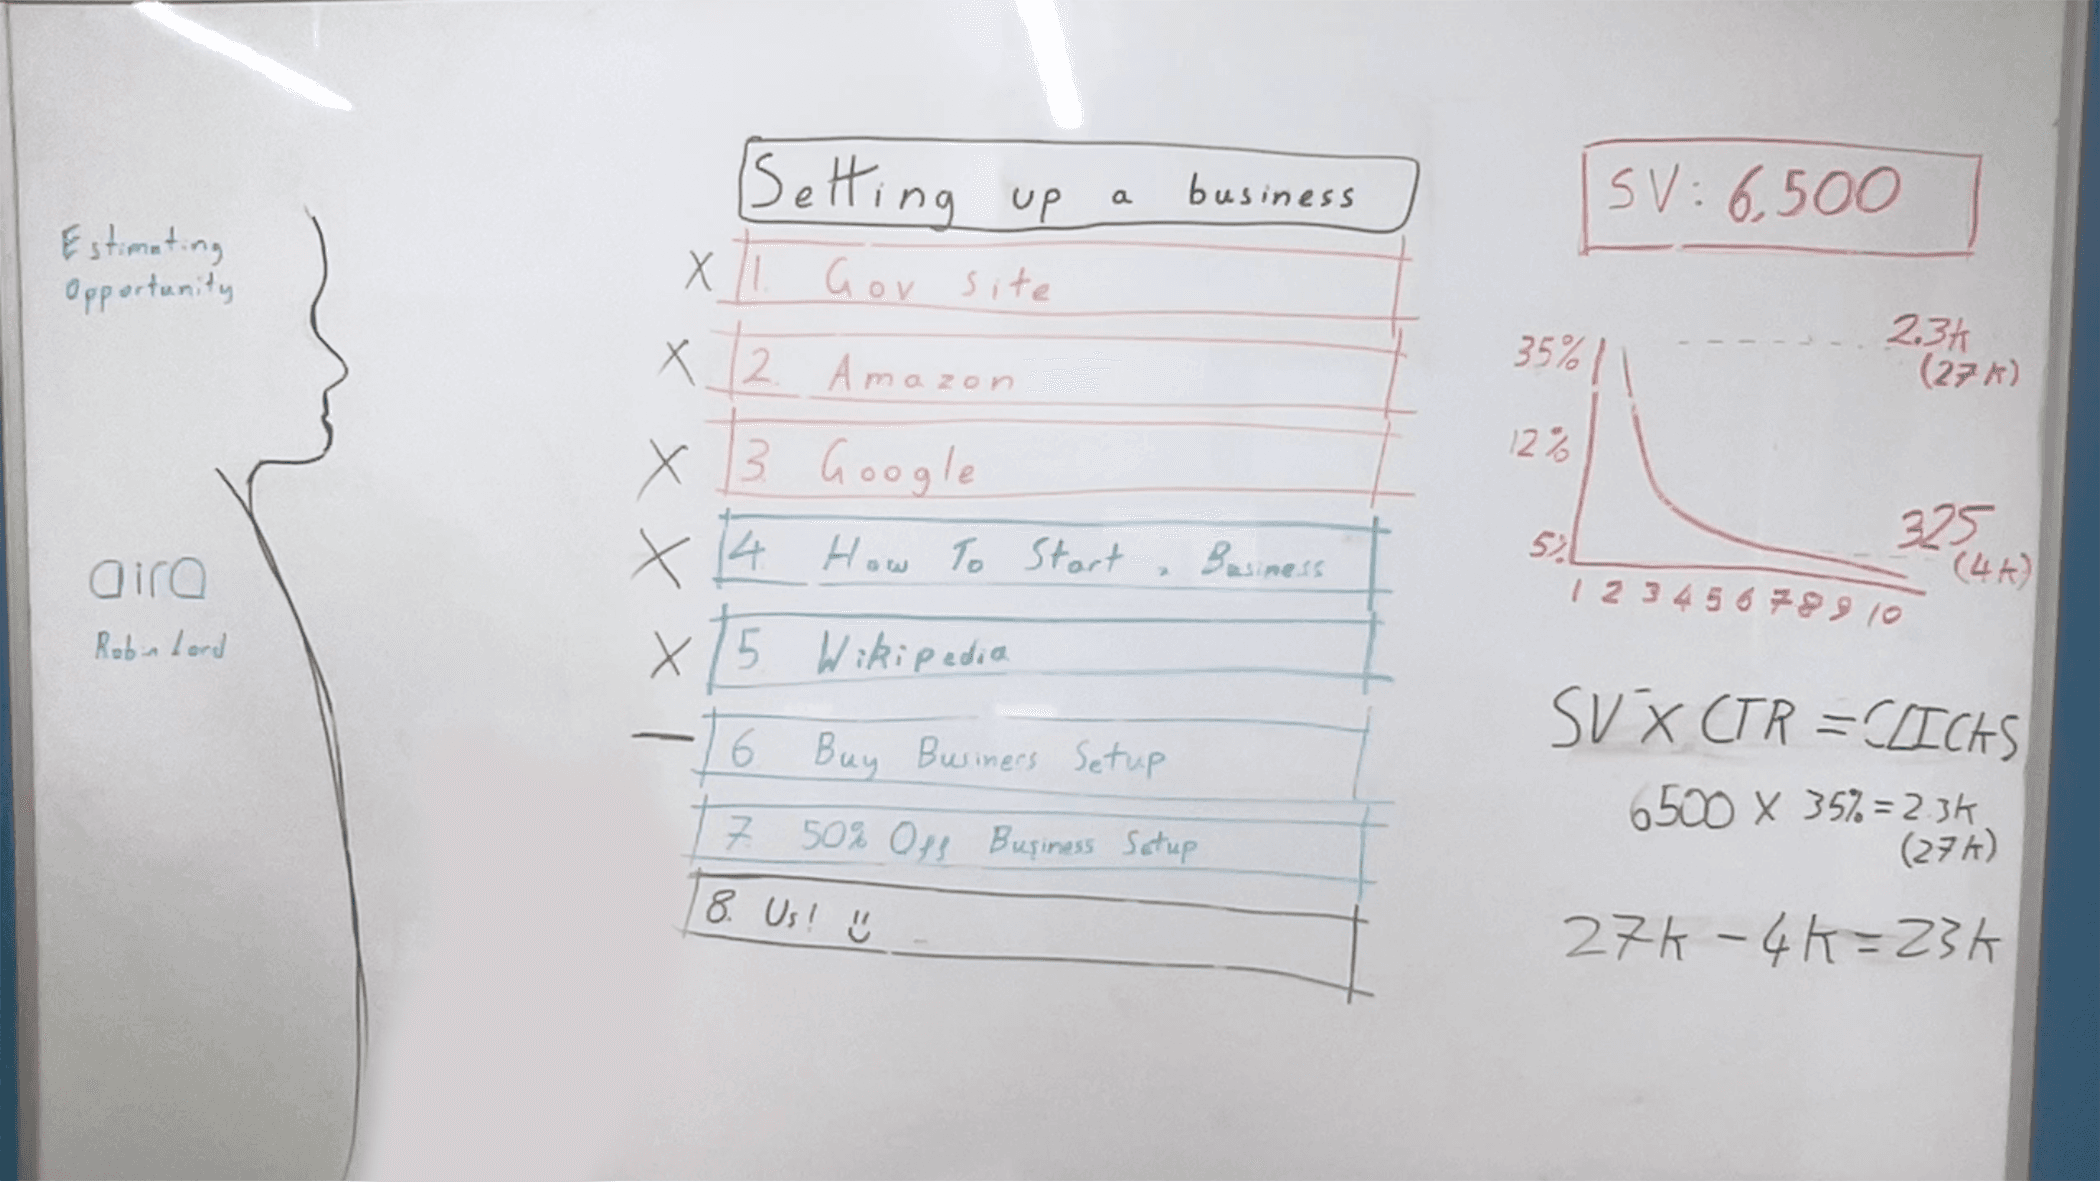 Estimating
Opportunity
aira
Robin Lord
Setting up a business
1. Gov site
2. Amazon
3. Google
4 How To Start a Business
5 Wikipedia
6 Buy Business Setup
7. 50% Off Business Setup
8. Us!
SV: 6,500
35%
12%
5%
2.3k
(27k)
325
(4k)
1 2 3 4 5 6 7 8 9 10
SV X CTR = CLICKS
6500 X 35% = 2.3k
(27k)
27k - 4k = 23k